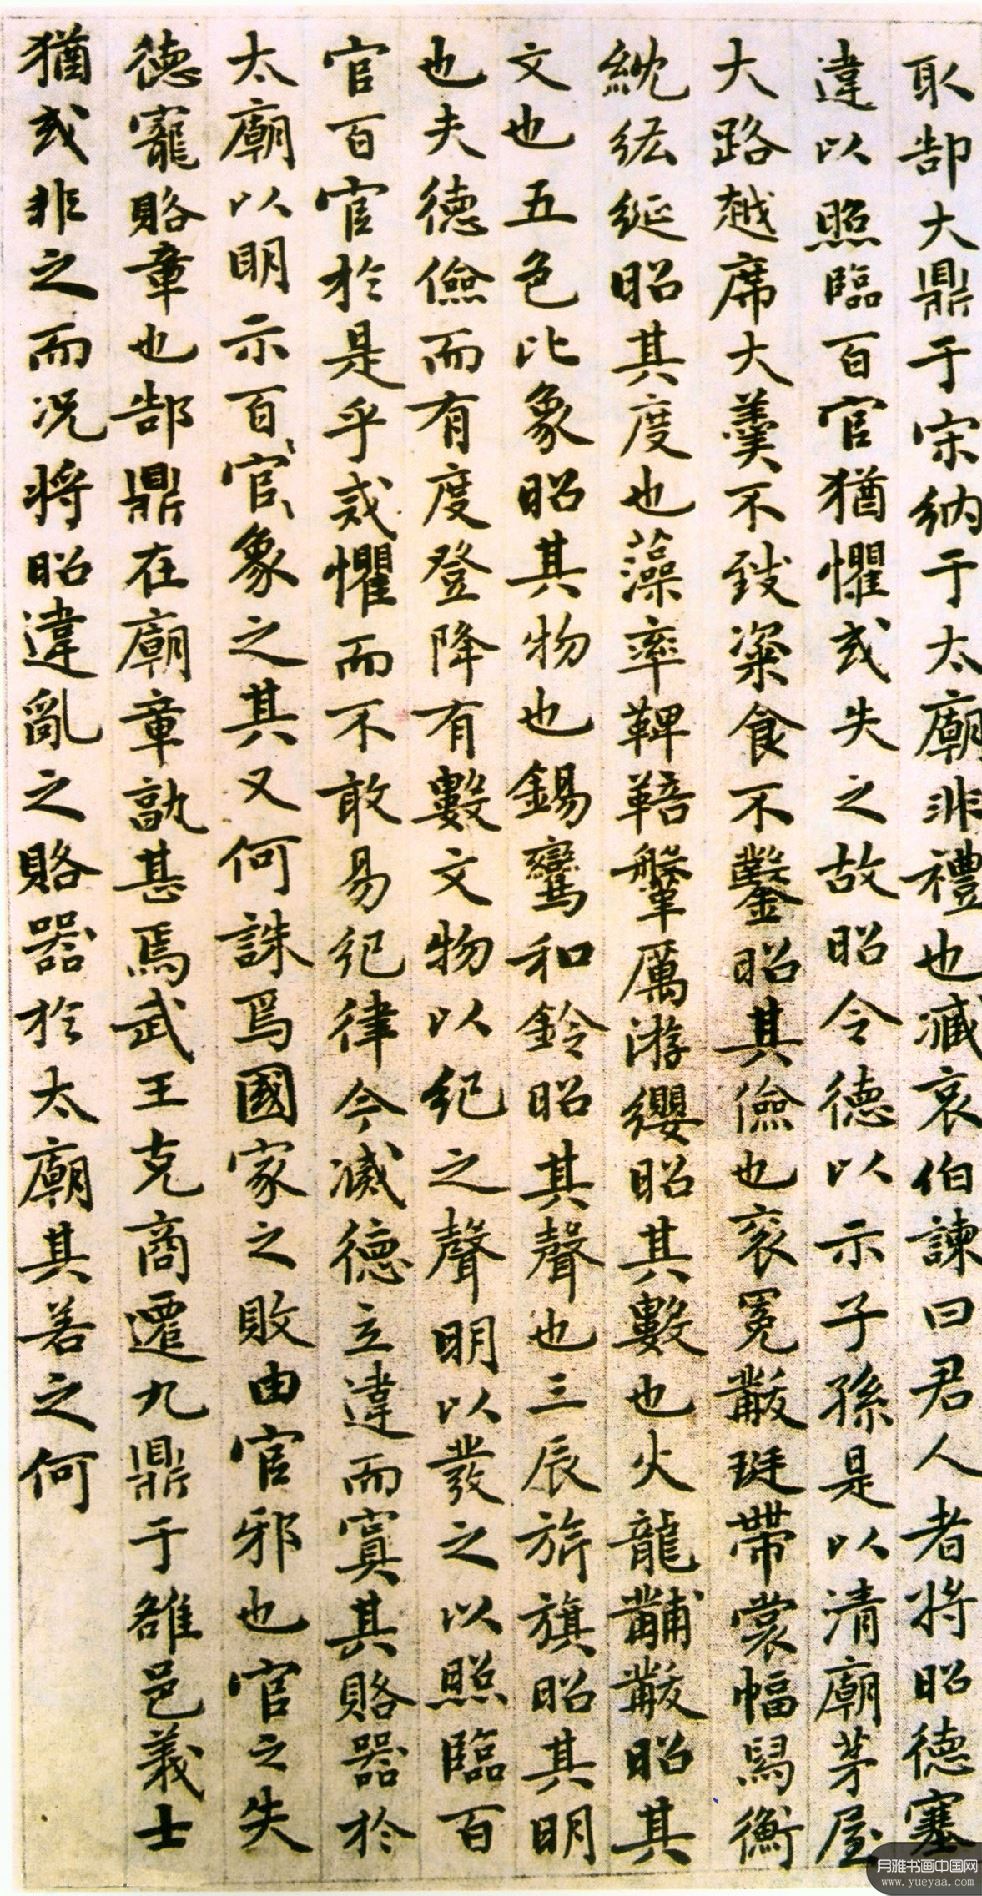 取郜大鼎于宋納于太廟非禮也臧哀伯諫曰君人者將昭德塞
違以照臨百官猶懼或失之故昭令德以示子孫是以清廟茅屋
大路越席大羹不致粢食不鑿昭其儉也衮冕黻珽帶裳幅舄衡
紞紘綖昭其度也藻率鞞鞛鞶厲游纓昭其數也火龍黼黻昭其
文也五色比象昭其物也錫鸞和鈴昭其聲也三辰旂旗昭其明
也夫德儉而有度登降有數文物以紀之聲明以發之以照臨百
官百官於是乎戒懼而不敢易紀律今滅德立違而寘其賂器於
太廟以明示百官象之其又何誅焉國家之敗由官邪也官之失
德寵賂章也郜鼎在廟章孰甚焉武王克商遷九鼎于雒邑義士
猶或非之而况將昭違亂之賂器於太廟其若之何
月雅书画中国网
www.yueyaa.com